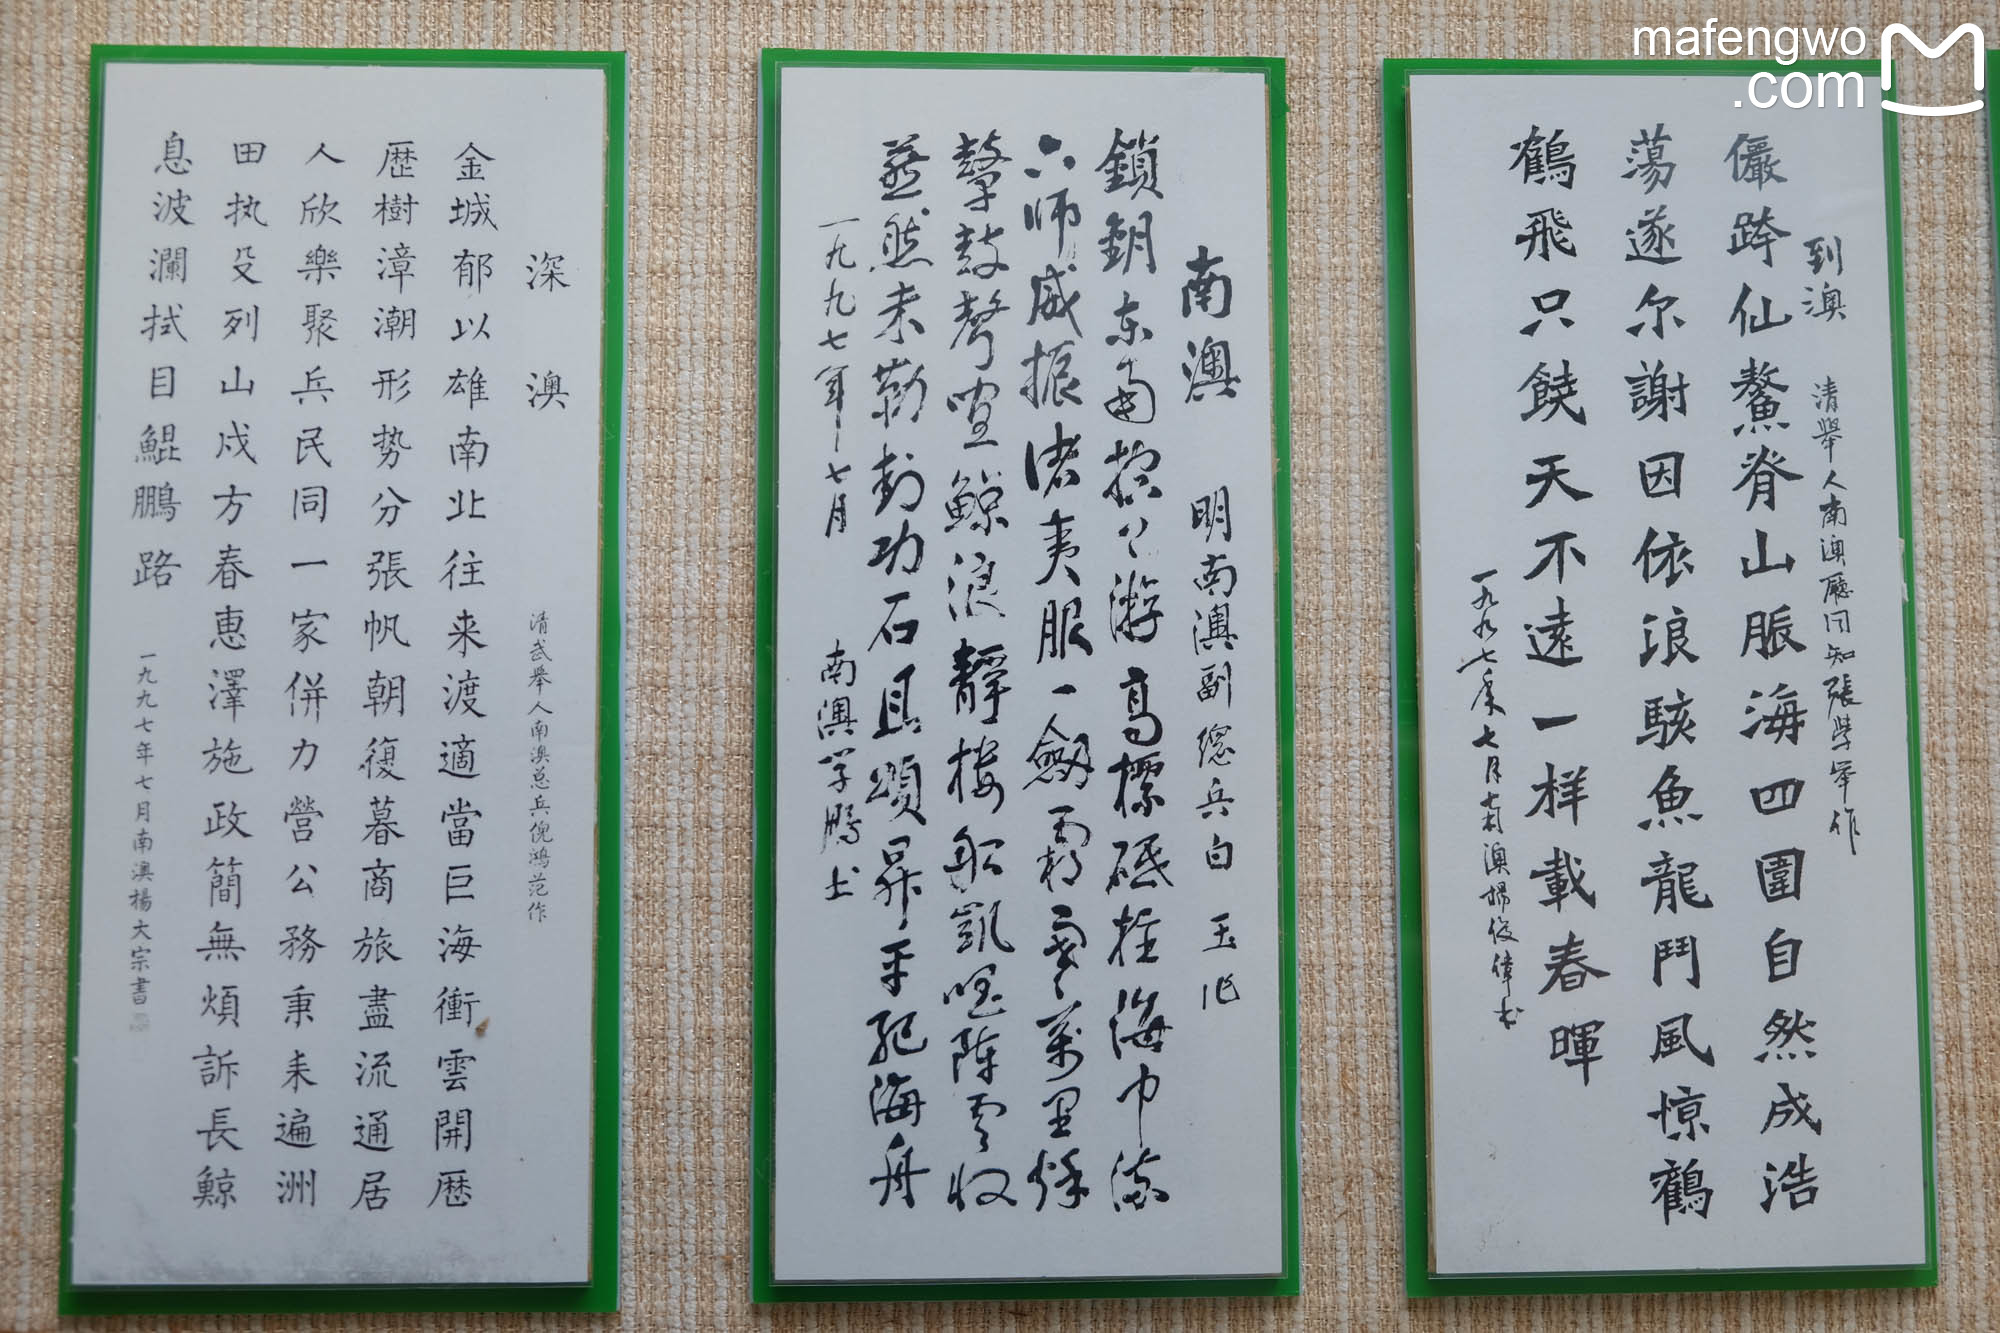 mafengwo
.com
到澳
清舉人南澳廳同知張學舉作
儼跨仙鰲脊山脈海四圍自然成浩
蕩遂尔謝因依浪駭魚龍鬥風惊鶴
鶴飛只饒天不遠一样載春暉
一九九七年七月南澳楊俊偉书
南澳
明南澳副總兵白玉作
鎖鑰东南控上游高標砥柱海中流
六师威振诸夷服一劍霜寒万里
鼙鼓聲喧鯨浪靜楼船凱唱陣雲收
燕然未勒封功石且頌昇平纪海舟
一九九七年七月
南澳
深澳
清武舉人南澳总兵倪鴻范作
金城郁以雄南北往来渡適當巨海衝雲開歷
歷樹漳潮形势分張帆朝復暮商旅盡流通居
人欣樂聚兵民同一家併力營公務秉耒遍洲
田执殳列山戍方春惠澤施政簡無煩訴長鯨
息波瀾拭目鯤鵬路
一九九七年七月南澳楊大宗書